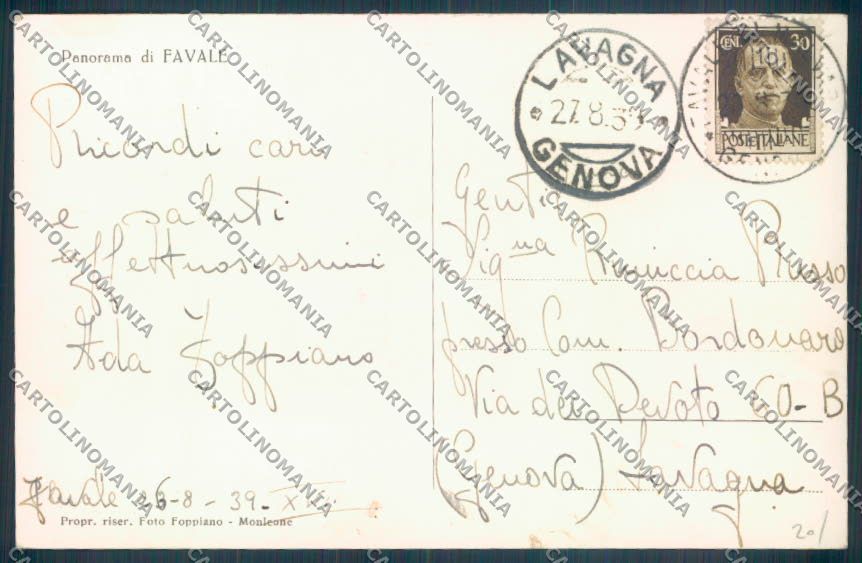 Panorama di FAVALE
Ricordi cari
e saluti
affettuosissimi
Ada Foppiano
Favale 26-8-39-XVII
Propr. riser. Foto Foppiano - Monleone
LAVAGNA
27.8.39
GENOVA
CENT. 30
POSTE ITALIANE
Gent.
Sig.na Rosso
presso Com. Bordonaro
Via dei Devoto 60-B
(Genova) Lavagna
20/
CARTOLINOMANIA